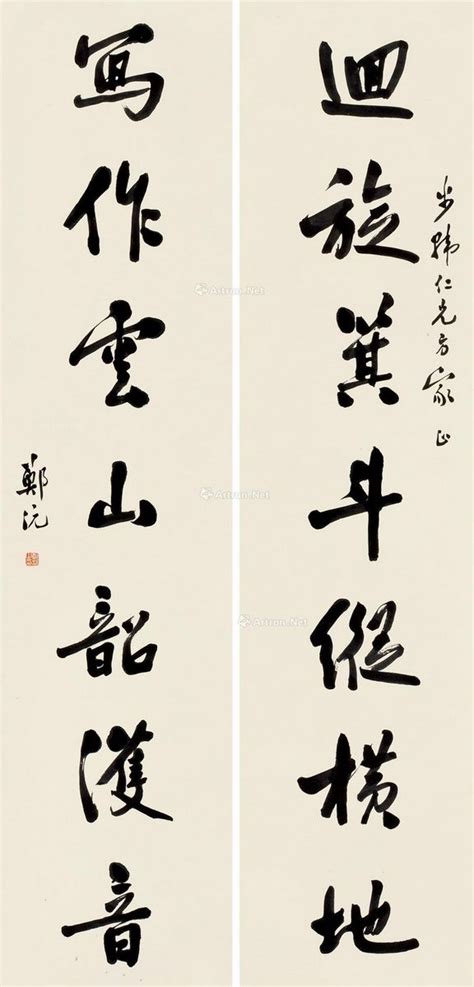 步仁兄方家正
迴旋箕斗縱橫地
寫作雲山韶濩音
鄭沅
Artron.Net
Artron.Net
Artron.Net